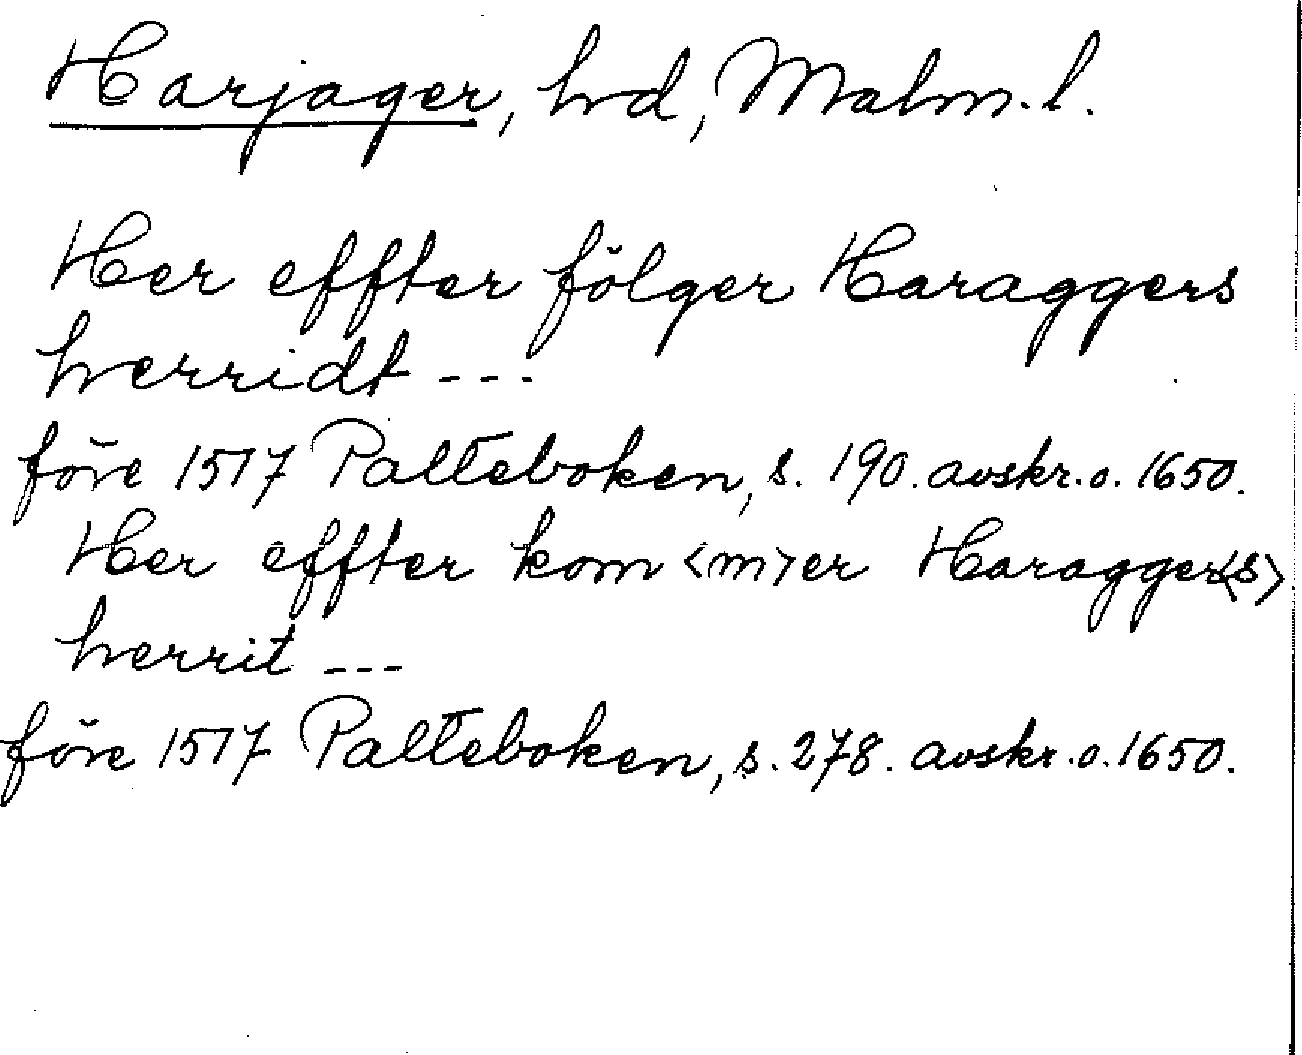 Harjager, hd, Malm.l.
Her effter fölger Haraggers
herridt ---
före 1517 Palteboken, s. 190. avskr. o. 1650.
Her effter kom<m>er Haragger<s>
herrit ---
före 1517 Palteboken, s. 278. avskr. o. 1650.